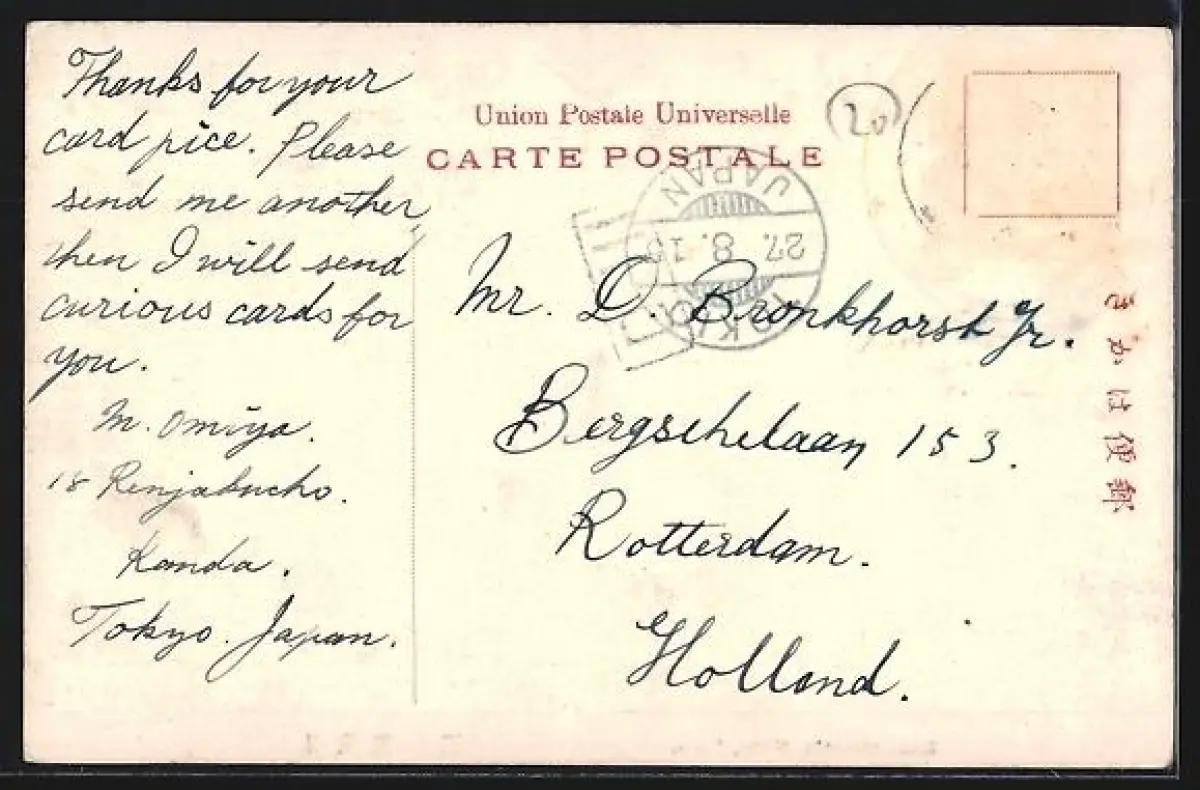 Thanks for your
card pice. Please
send me another,
then I will send
curious cards for
you.
M. Omiya.
18 Renjakucho.
Kanda.
Tokyo. Japan.
Union Postale Universelle
CARTE POSTALE
20
JAPAN
27. 8. 1
TOKIO
Mr. D. Bronkhorst Jr.
Bergschelaan 153.
Rotterdam.
Holland.
きかは便郵